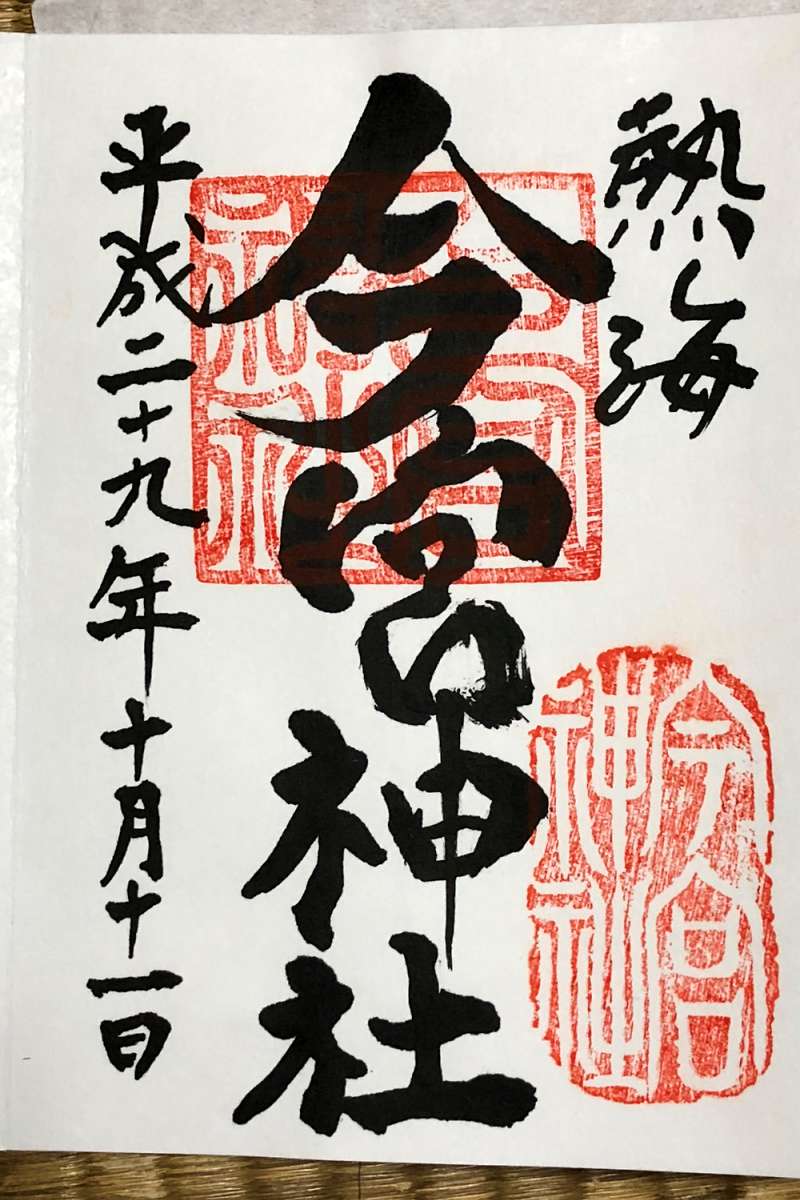 熱海
今宮神社
平成二十九年十月十一日
今宮神社
今宮神社